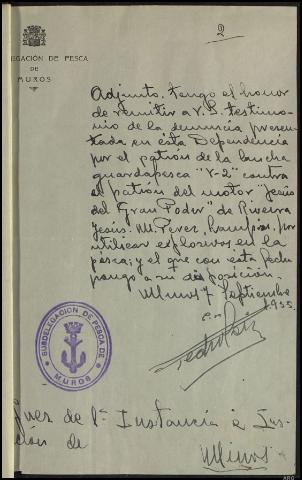 2
EGACIÓN DE PESCA
DE
MUROS
Adjunto, tengo el honor
de remitir a V.S. testimo-
nio de la denuncia presen-
tada en ésta Dependencia
por el patrón de la lancha
guardapesca "V-2" contra
el patrón del motor "Jesús
del Gran Poder", de Riveira
Jesús M. Pérez, por
utilizar explosivos en la
pesca; y el que con ésta fecha
pongo a su disposición.
Muros 7 Septiembre
1935.
SUBDELEGACIÓN DE PESCA DE
MUROS
Juez de 1ª Instancia é Ins-
ción de
Muros
ARG